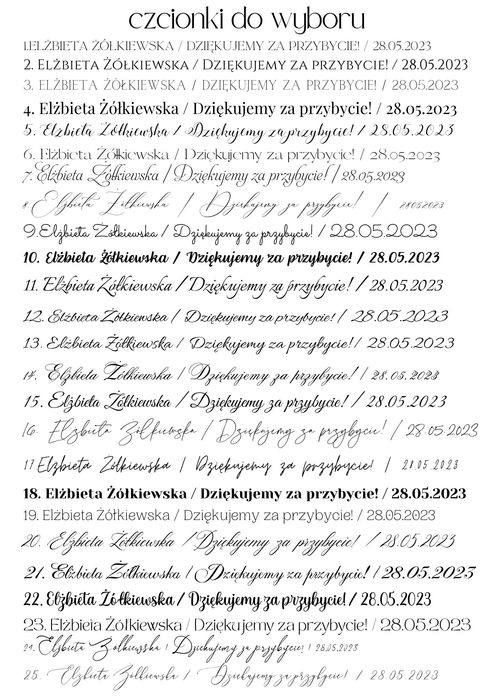 czcionki do wyboru
1.ELŻBIETA ŻÓŁKIEWSKA / DZIĘKUJEMY ZA PRZYBYCIE! / 28.05.2023
2. ELŻBIETA ŻÓŁKIEWSKA / DZIĘKUJEMY ZA PRZYBYCIE! / 28.05.2023
3. ELŻBIETA ŻÓŁKIEWSKA / DZIĘKUJEMY ZA PRZYBYCIE! / 28.05.2023
4. Elżbieta Żółkiewska / Dziękujemy za przybycie! / 28.05.2023
5. Elżbieta Żółkiewska / Dziękujemy za przybycie! / 28.05.2023
6. Elżbieta Żółkiewska / Dziękujemy za przybycie! / 28.05.2023
7. Elżbieta Żółkiewska / Dziękujemy za przybycie! / 28.05.2023
8 Elżbieta Żółkiewska / Dziękujemy za przybycie! / 28.05.2023
9. Elżbieta Żółkiewska / Dziękujemy za przybycie! / 28.05.2023
10. Elżbieta Żółkiewska / Dziękujemy za przybycie! / 28.05.2023
11. Elżbieta Żółkiewska / Dziękujemy za przybycie! / 28.05.2023
12. Elżbieta Żółkiewska / Dziękujemy za przybycie! / 28.05.2023
13. Elżbieta Żółkiewska / Dziękujemy za przybycie! / 28.05.2023
14. Elżbieta Żółkiewska / Dziękujemy za przybycie! / 28.05.2023
15. Elżbieta Żółkiewska / Dziękujemy za przybycie! / 28.05.2023
16. Elżbieta Żółkiewska / Dziękujemy za przybycie! / 28.05.2023
17 Elżbieta Żółkiewska / Dziękujemy za przybycie! / 28.05.2023
18. Elżbieta Żółkiewska / Dziękujemy za przybycie! / 28.05.2023
19. Elżbieta Żółkiewska / Dziękujemy za przybycie! / 28.05.2023
20. Elżbieta Żółkiewska / Dziękujemy za przybycie! / 28.05.2023
21. Elżbieta Żółkiewska / Dziękujemy za przybycie! / 28.05.2023
22. Elżbieta Żółkiewska / Dziękujemy za przybycie! / 28.05.2023
23. Elżbieta Żółkiewska / Dziękujemy za przybycie! / 28.05.2023
24. Elżbieta Żółkiewska / Dziękujemy za przybycie! / 28.05.2023
25. Elżbieta Żółkiewska / Dziękujemy za przybycie! / 28.05.2023